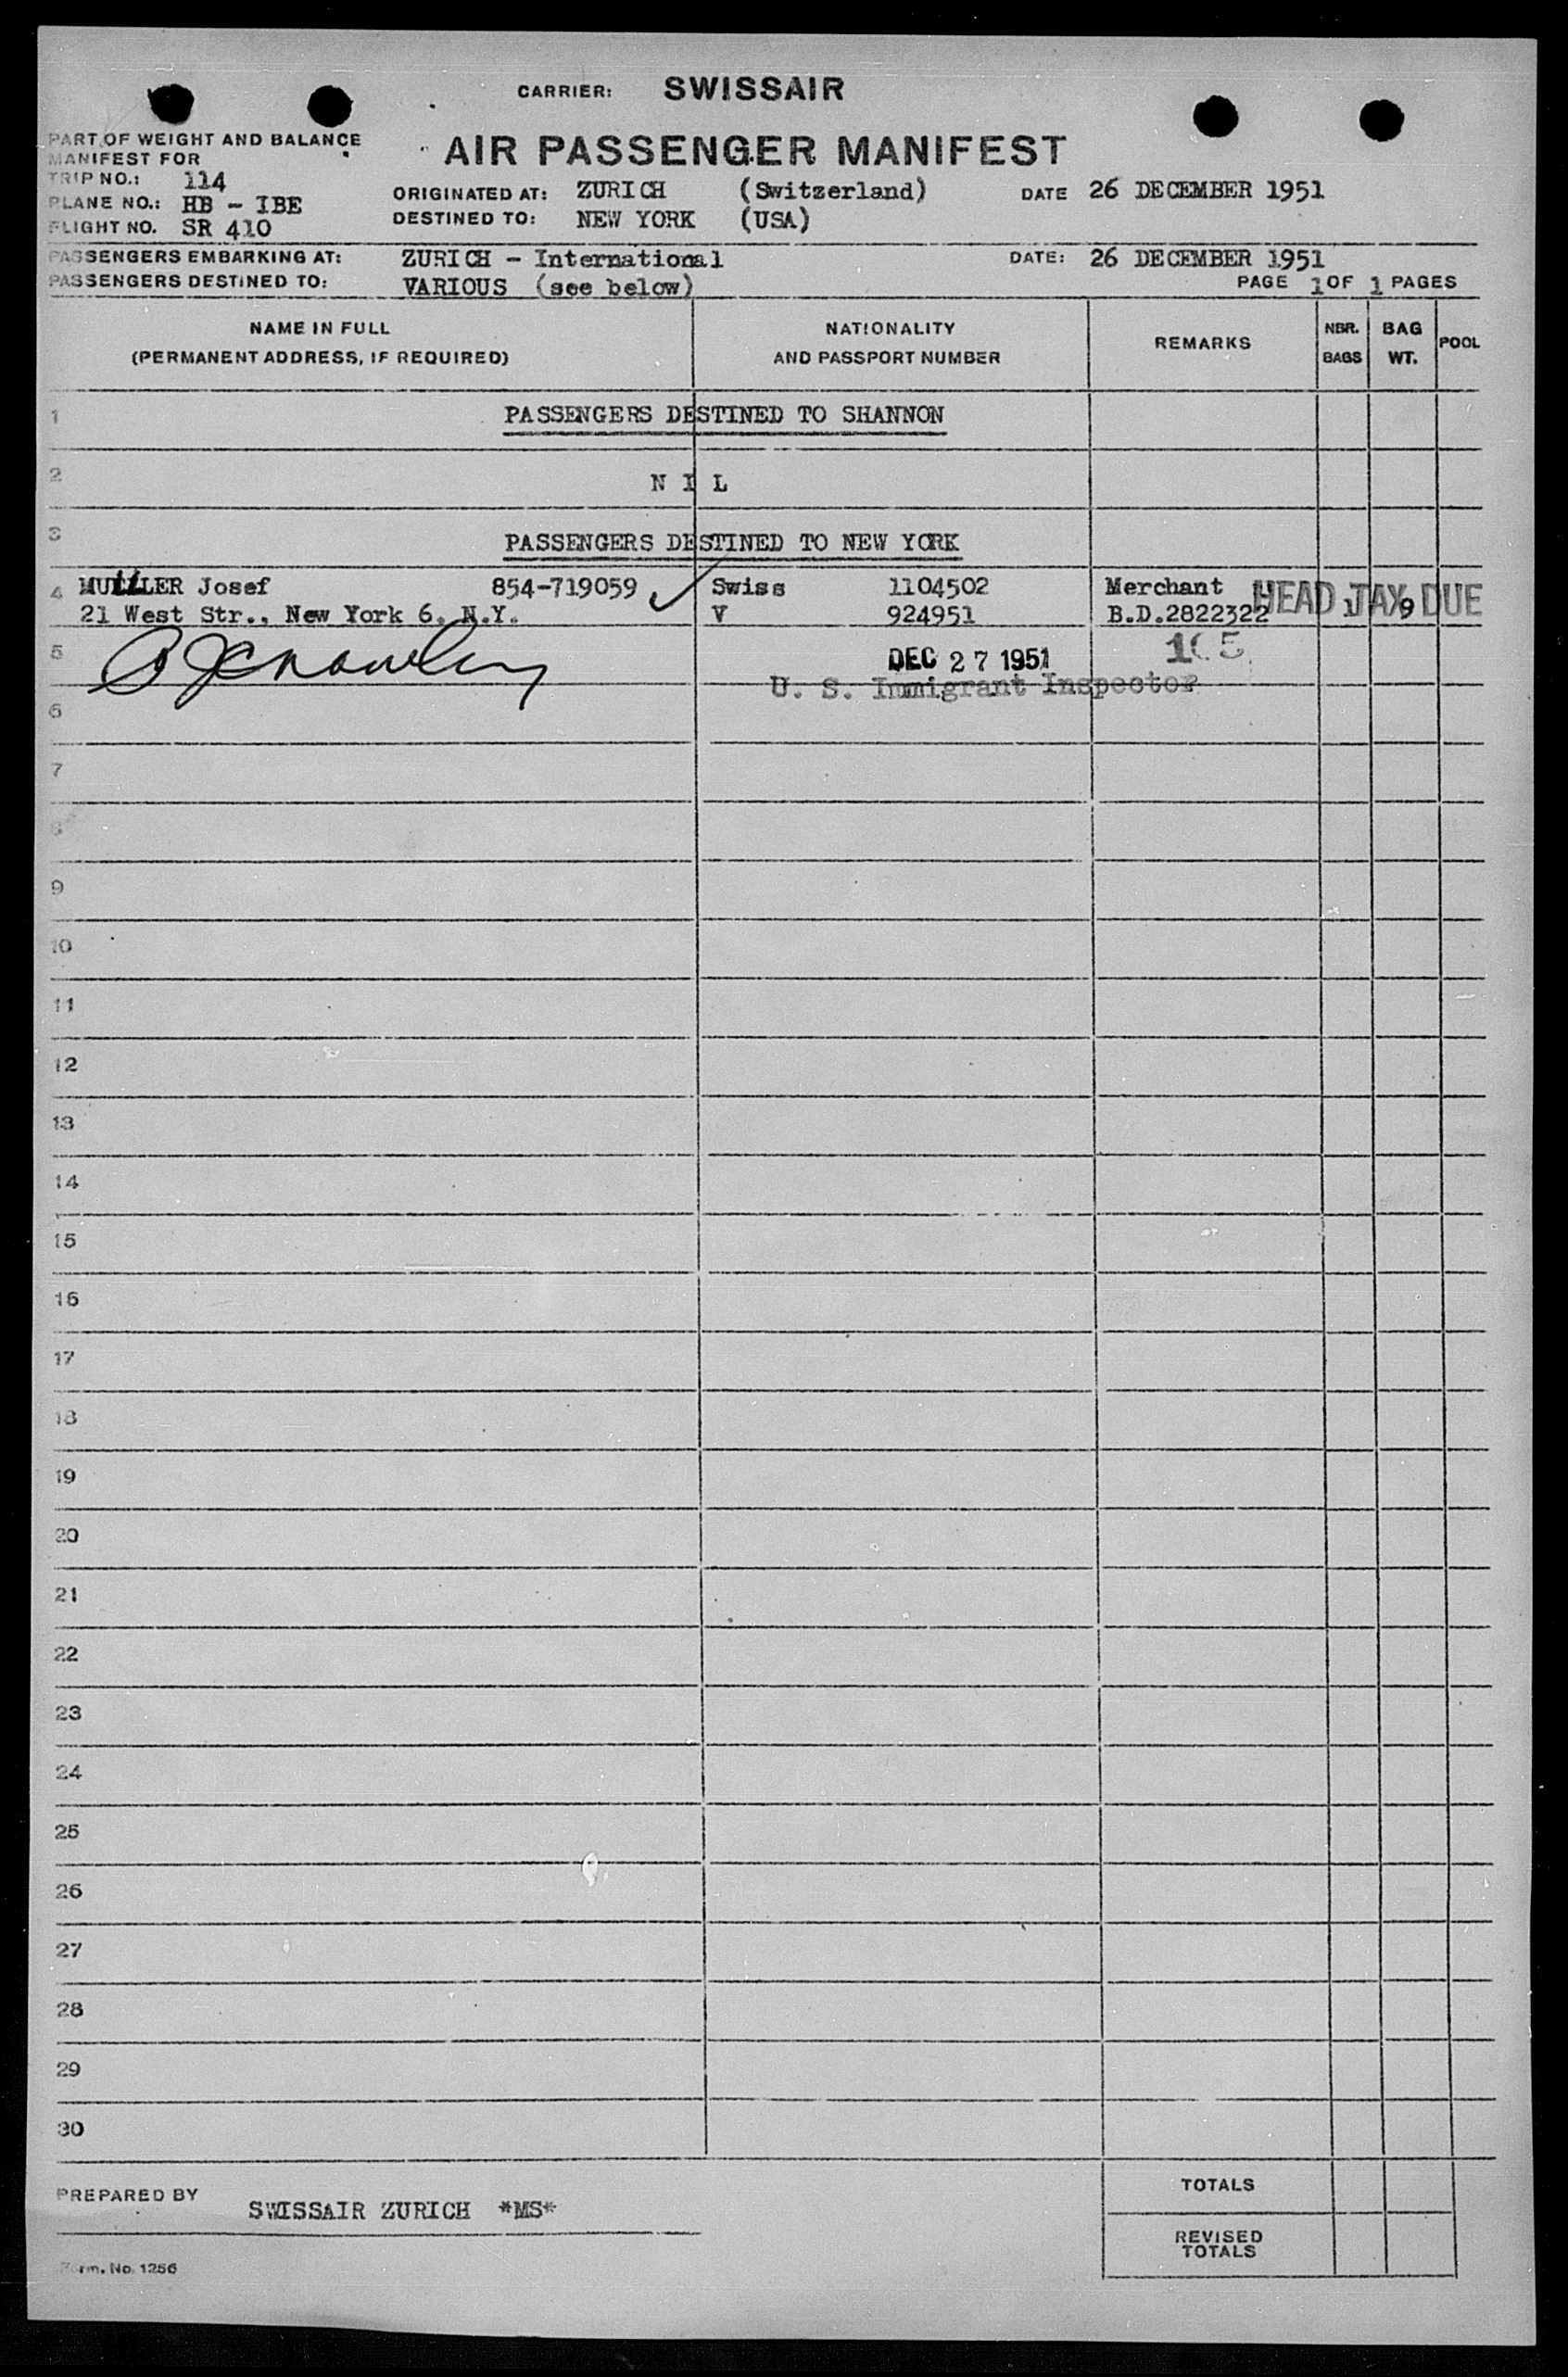 CARRIER: SWISSAIR
AIR PASSENGER MANIFEST
PART OF WEIGHT AND BALANCE
MANIFEST FOR
TRIP NO.: 114
PLANE NO.: HB - IBE
FLIGHT NO. SR 410
ORIGINATED AT: ZURICH (Switzerland) DATE 26 DECEMBER 1951
DESTINED TO: NEW YORK (USA)
PASSENGERS EMBARKING AT: ZURICH - International DATE: 26 DECEMBER 1951
PASSENGERS DESTINED TO: VARIOUS (see below) PAGE 1 OF 1 PAGES
NAME IN FULL
(PERMANENT ADDRESS, IF REQUIRED)
NATIONALITY
AND PASSPORT NUMBER
REMARKS
NBR.
BAGS
BAG
WT.
POOL
1 PASSENGERS DESTINED TO SHANNON
2 N I L
3 PASSENGERS DESTINED TO NEW YORK
4 Josef 854-719059 Swiss 1104502 Merchant HEAD TAX DUE
21 West Str., New York 6, N.Y. V 924951 B.D.2822322 1 9
5 DEC 27 1951
U. S. Immigrant Inspector
6
7
8
9
10
11
12
13
14
15
16
17
18
19
20
21
22
23
24
25
26
27
28
29
30
PREPARED BY SWISSAIR ZURICH *MS*
TOTALS
REVISED
TOTALS
Form. No. 1256